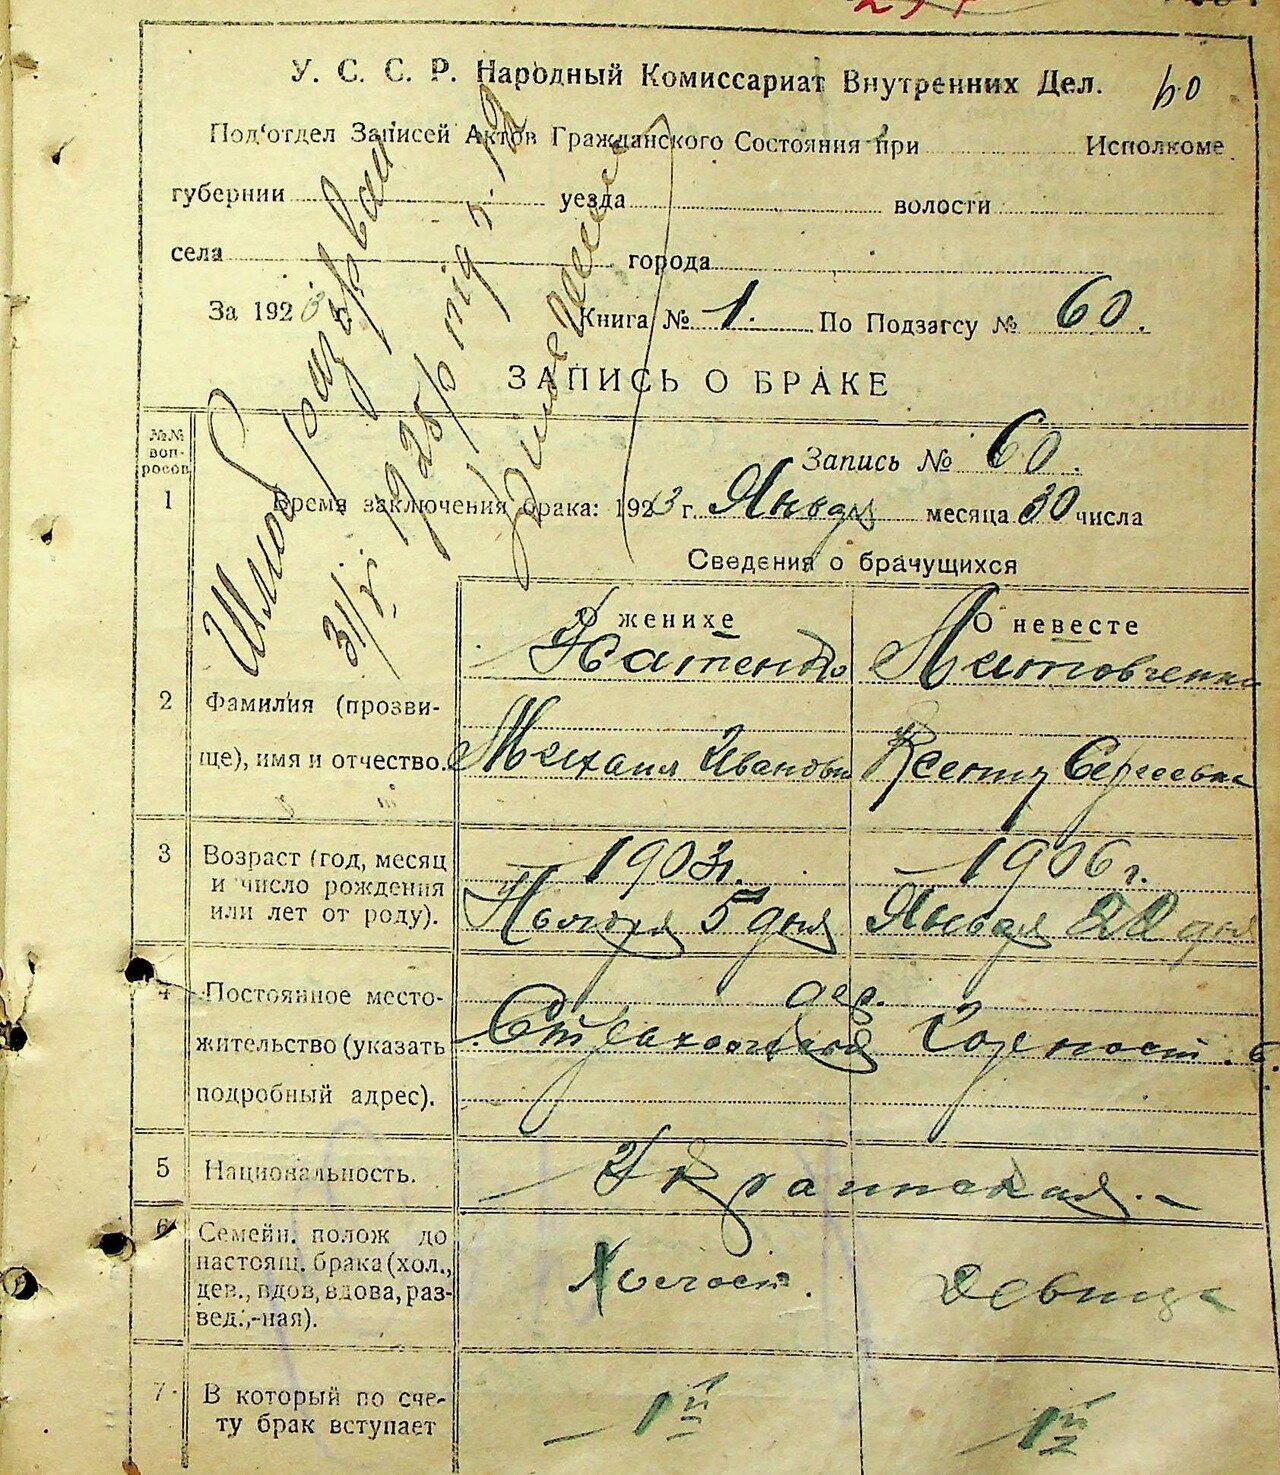 У. С. С. Р. Народный Комиссариат Внутренних Дел. 60
Под'отдел Записей Актов Гражданского Состояния при Исполкоме
губернии уезда волости
села города
За 1923 г. Книга № 1. По Подзагсу № 60.
ЗАПИСЬ О БРАКЕ
№№ вопросов
Запись № 60.
1 Время заключения брака: 1923 г. Январь месяца 30 числа
Сведения о брачущихся
О женихе О невесте
Литовченко
2 Фамилия (прозви-
ще), имя и отчество. Михаил Иванович Ксения Сергеевна
3 Возраст (год, месяц 1903 г. 1906 г.
и число рождения
или лет от роду). Ноября 5 дня Января 22 дня
4 Постоянное место- дер.
жительство (указать
подробный адрес).
5 Национальность. Украинская.
6 Семейн. полож до
настоящ. брака (хол., Холост. Девица
дев., вдов, вдова, раз-
вед.,-ная).
7 В который по сче- 1й 1й
ту брак вступает